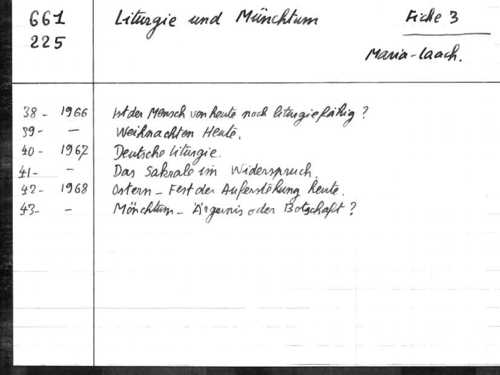 661 Liturgie und Münchtum Fiche 3
225 Maria-Laach.
38- 1966 Ist der Mensch von heute noch liturgiefähig?
39- - Weihnachten Heute.
40- 1967 Deutsche liturgie.
41- - Das Sakrale im Widerspruch.
42- 1968 Ostern - Fest der Auferstehung heute.
43- - Mönchtum - Ärgernis oder Botschaft?